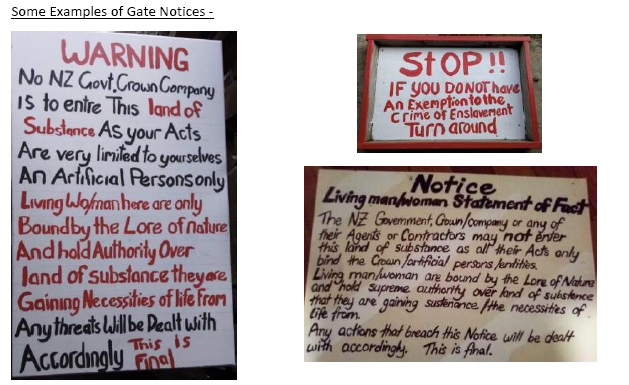 Some Examples of Gate Notices -
WARNING
No NZ Govt, Crown Company
is to entre This land of
Substance As your Acts
Are very limited to yourselves
An Artificial Persons only
Living Wo/man here are only
Bound by the Lore of nature
And hold Authority Over
land of substance they are
Gaining Necessities of life From
Any threats Will be Dealt with
Accordingly This is
Final
StOP!!
IF YOU DO NOT have
An Exemption to the
Crime of Enslavement
Turn around
Notice
Living man/woman Statement of Fact
The NZ Government, Crown/company or any of
their Agents or Contractors may not enter
this land of substance as all their Acts only
bind the Crown/artificial persons/entities.
Living man/woman are bound by the Lore of Nature
and hold supreme authority over land of substence
that they are gaining sustenance/the necessities of
life from.
Any actions that breach this Notice will be dealt
with accordingly. This is final.